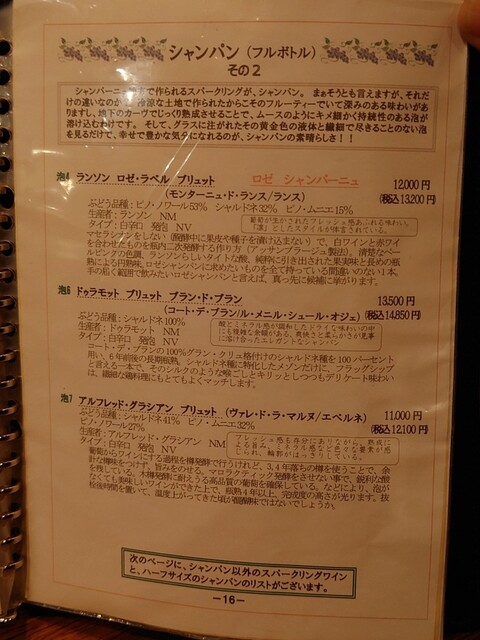 シャンパン（フルボトル）
その２
シャンパーニュ で作られるスパークリングが、シャンパン。 まぁそうとも言えますが、それだ
けの違いなのか 冷涼な土地で作られたからこそのフルーティーでいて深みのある味わいが
ありますし、地下のカーヴでじっくり熟成させることで、ムースのようにキメ細かく持続性のある泡が
溶け込むわけです。 そして、グラスに注がれたその黄金色の液体と繊細で尽きることのない泡
を見るだけで、幸せで豊かな気分になれるのが、シャンパンの素晴らしさ！！
泡4 ランソン ロゼ・ラベル ブリュット ロゼ シャンパーニュ 12,000 円
(モンターニュ・ド・ランス/ランス) (税込13,200 円
ぶどう品種：ピノ・ノワール53% シャルドネ32% ピノ・ムニエ15%
生産者：ランソン NM
タイプ：白辛口 発泡 NV
葡萄が生かされたフレッシュ感あふれる味わい。
「凛」としたスタイルが体言されている。
マセラシオンをしない（醗酵中に果皮や種子を漬け込まない）で、白ワインと赤ワイ
ンを合わせたものを瓶内二次発酵する作り方（アッサンブラージュ製法）。清楚なペー
ルピンクの色調、ランソンらしいタイトな酸、純粋に引き出された果実味と長めの瓶
熟による円熟味。ロゼシャンパンに求めたいものを全て持っている間違いのない１本。
手の届く範囲で飲みたいロゼシャンパンと言えば、真っ先に候補に挙がります。
泡6 ドゥラモット ブリュット ブラン・ド・ブラン 13,500 円
(コート・デ・ブラン/ル・メニル・シュール・オジェ) (税込14,850 円
ぶどう品種：シャルドネ100%
生産者：ドゥラモット NM
タイプ：白辛口 発泡 NV
酸とミネラル感が調和したドライな味わいの中
にも複雑な余韻がある、爽快さと柔らかさが見事
に溶け合ったエレガントなシャンパン
コート・デ・ブランの100%グラン・クリュ格付けのシャルドネ種を 100 パーセント
用い、6 年前後の長期瓶熟。シャルドネ種に特化したメゾンだけに、フラッグシップ
と言える一本で、そのシルクのような喉ごしとキリッとしつつもデリケート味わい
は、繊細な鶏料理にもとてもよくマッチします。
泡7 アルフレッド・グラシアン ブリュット (ヴァレ・ド・ラ・マルヌ/エペルネ) 11,000 円
ぶどう品種：シャルドネ41% ピノ・ムニエ32% (税込12,100 円
ピノ・ノワール27%
生産者：アルフレッド・グラシアン NM
タイプ：白辛口 発泡 NV
フレッシュ感も存分にありながら、熟成に
よる旨み、ミネラル感など色々な要素が感
じられ、輪郭がはっきりしている。
葡萄からワインにする過程を樽発酵で行うけれど、3、4 年落ちの樽を使うことで、余
計な樽味をつけず、旨みをのせる。マロラクティック発酵をさせない事で、鋭利な酸
を残していく。木樽発酵に耐えうる高品質の葡萄を確保している、などにより、泡が
なくても美味しいワインができた上で、瓶熟4年以上。完成度の高さが光ります。抜
栓後時間を置いて、温度上がってきた頃が醍醐味ではないでしょうか。
次のページに、シャンパン以外のスパークリングワイン
と、ハーフサイズのシャンパンのリストがございます。
－16－